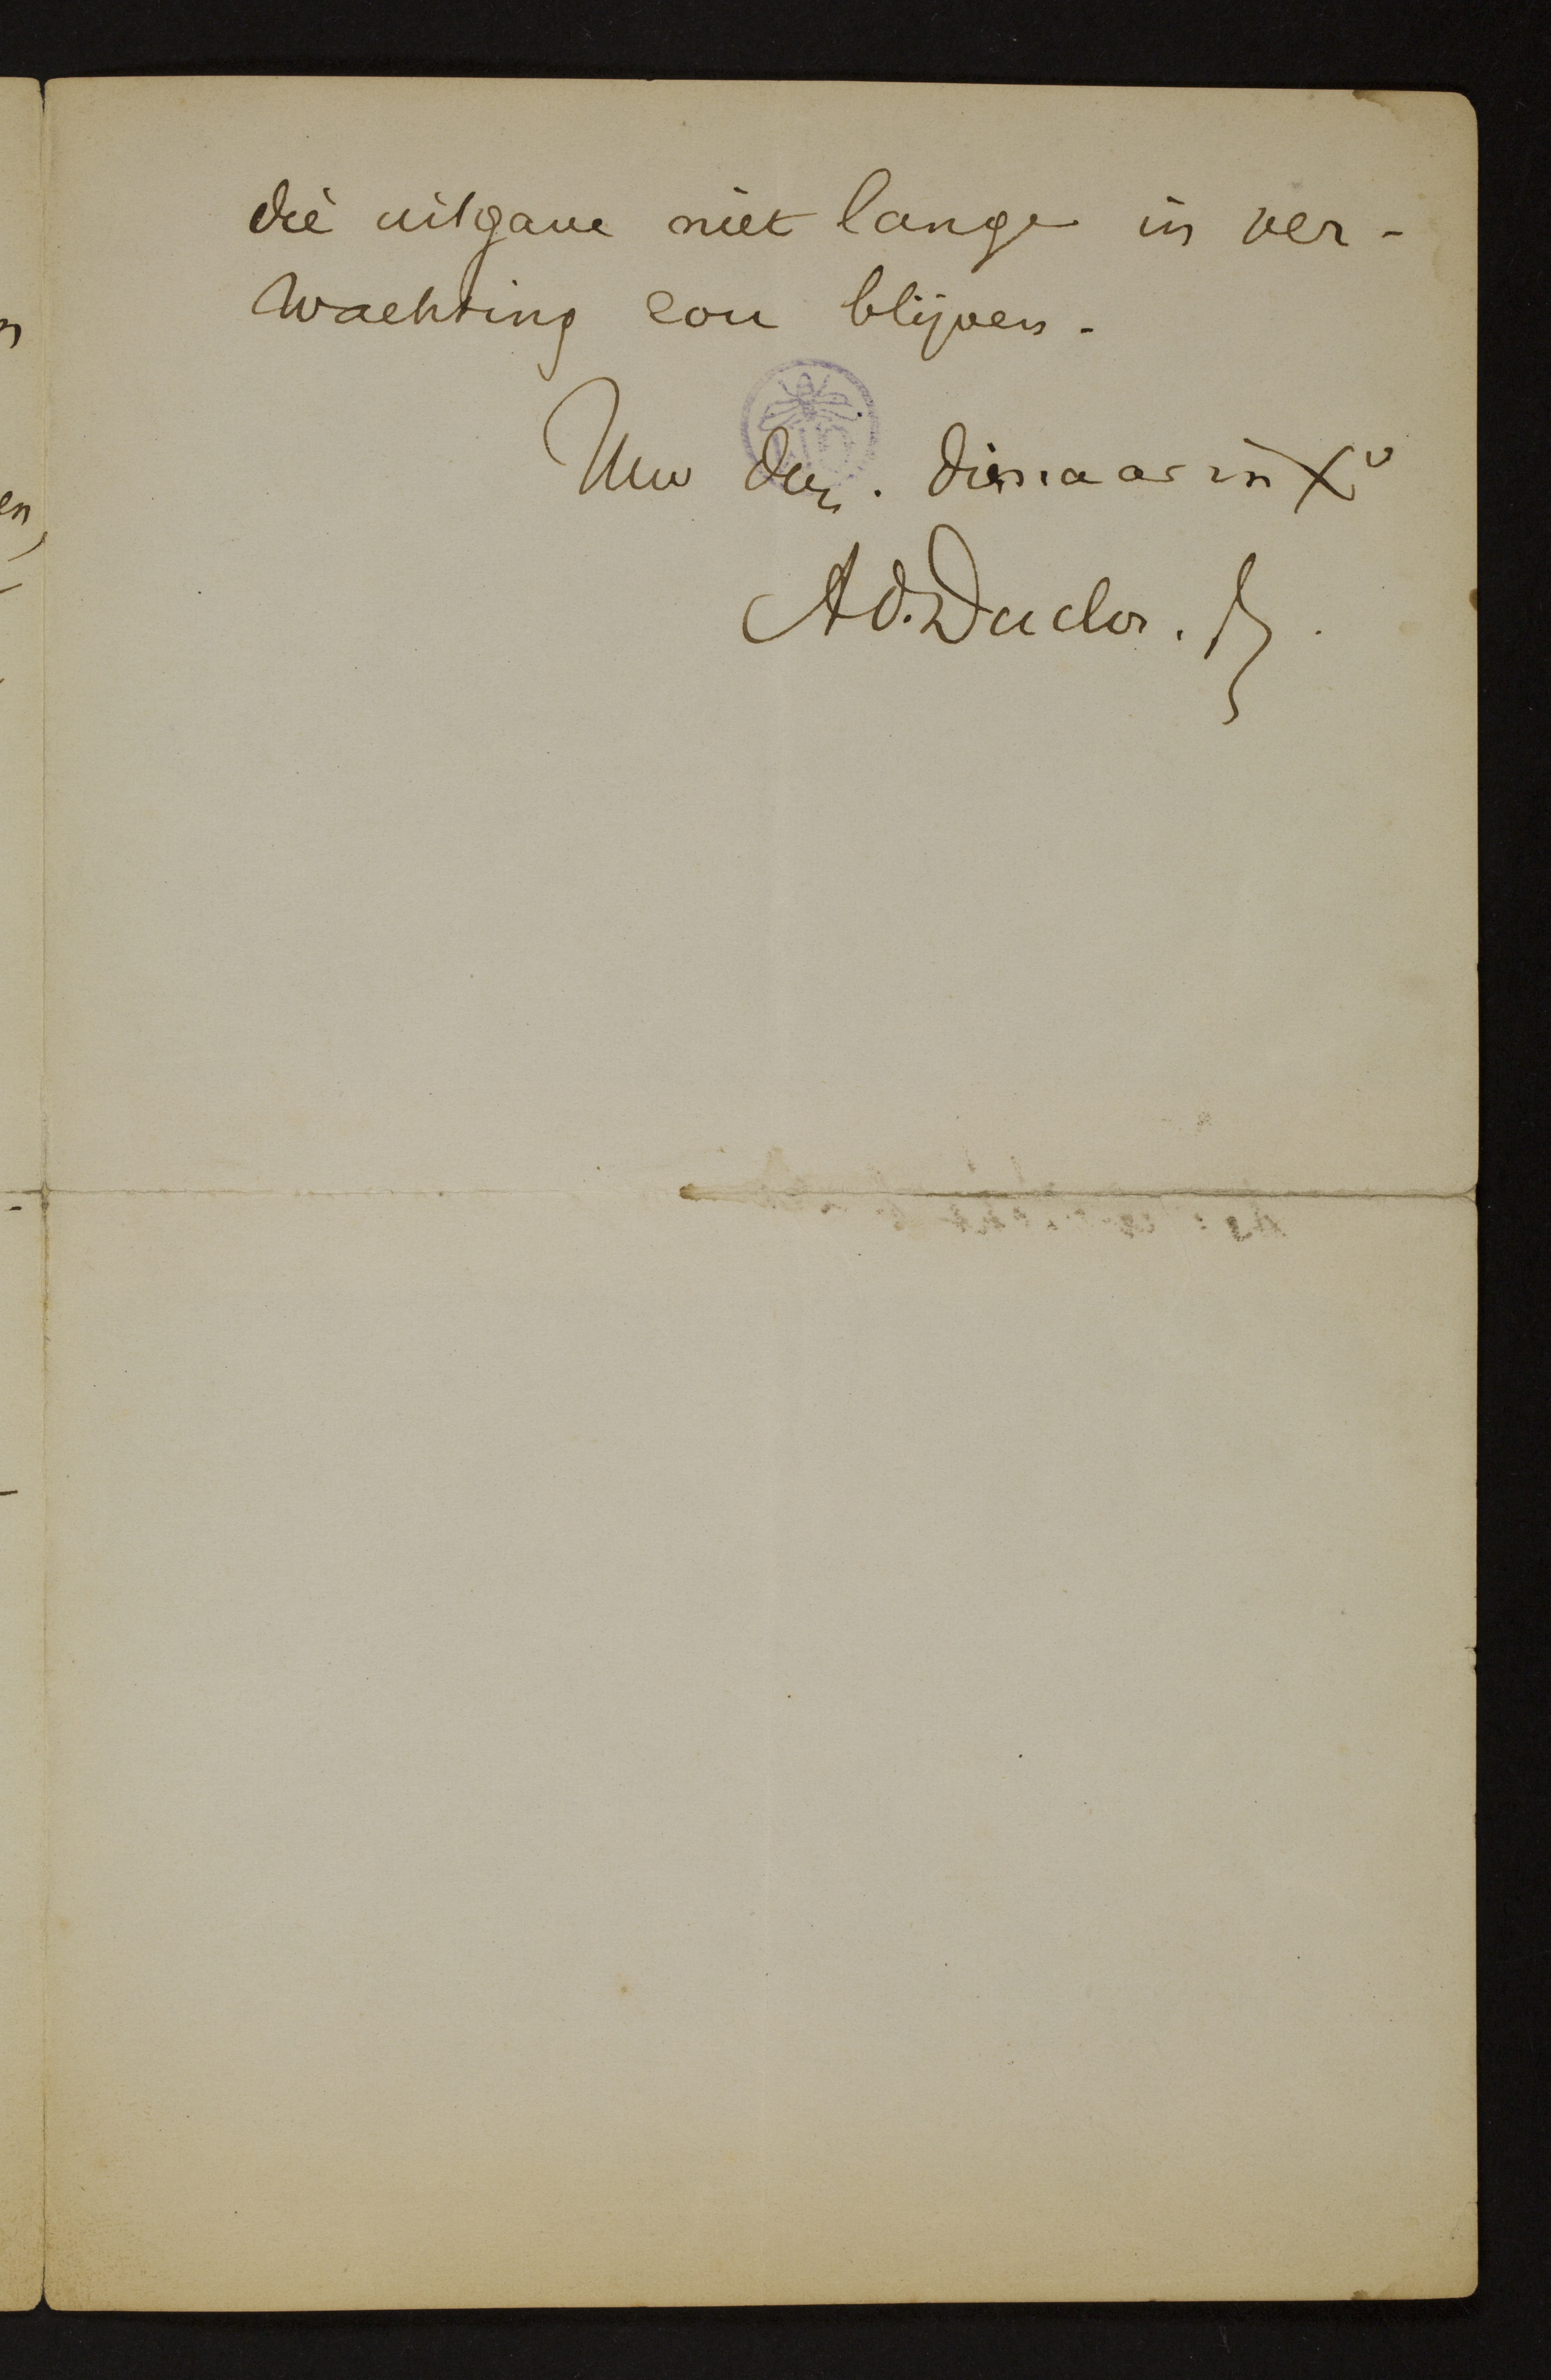 die uitgave niet lange in ver-
wachting zou blijven.
Uw dw. dienaar in Xº
Ad. Duclos. Pr.